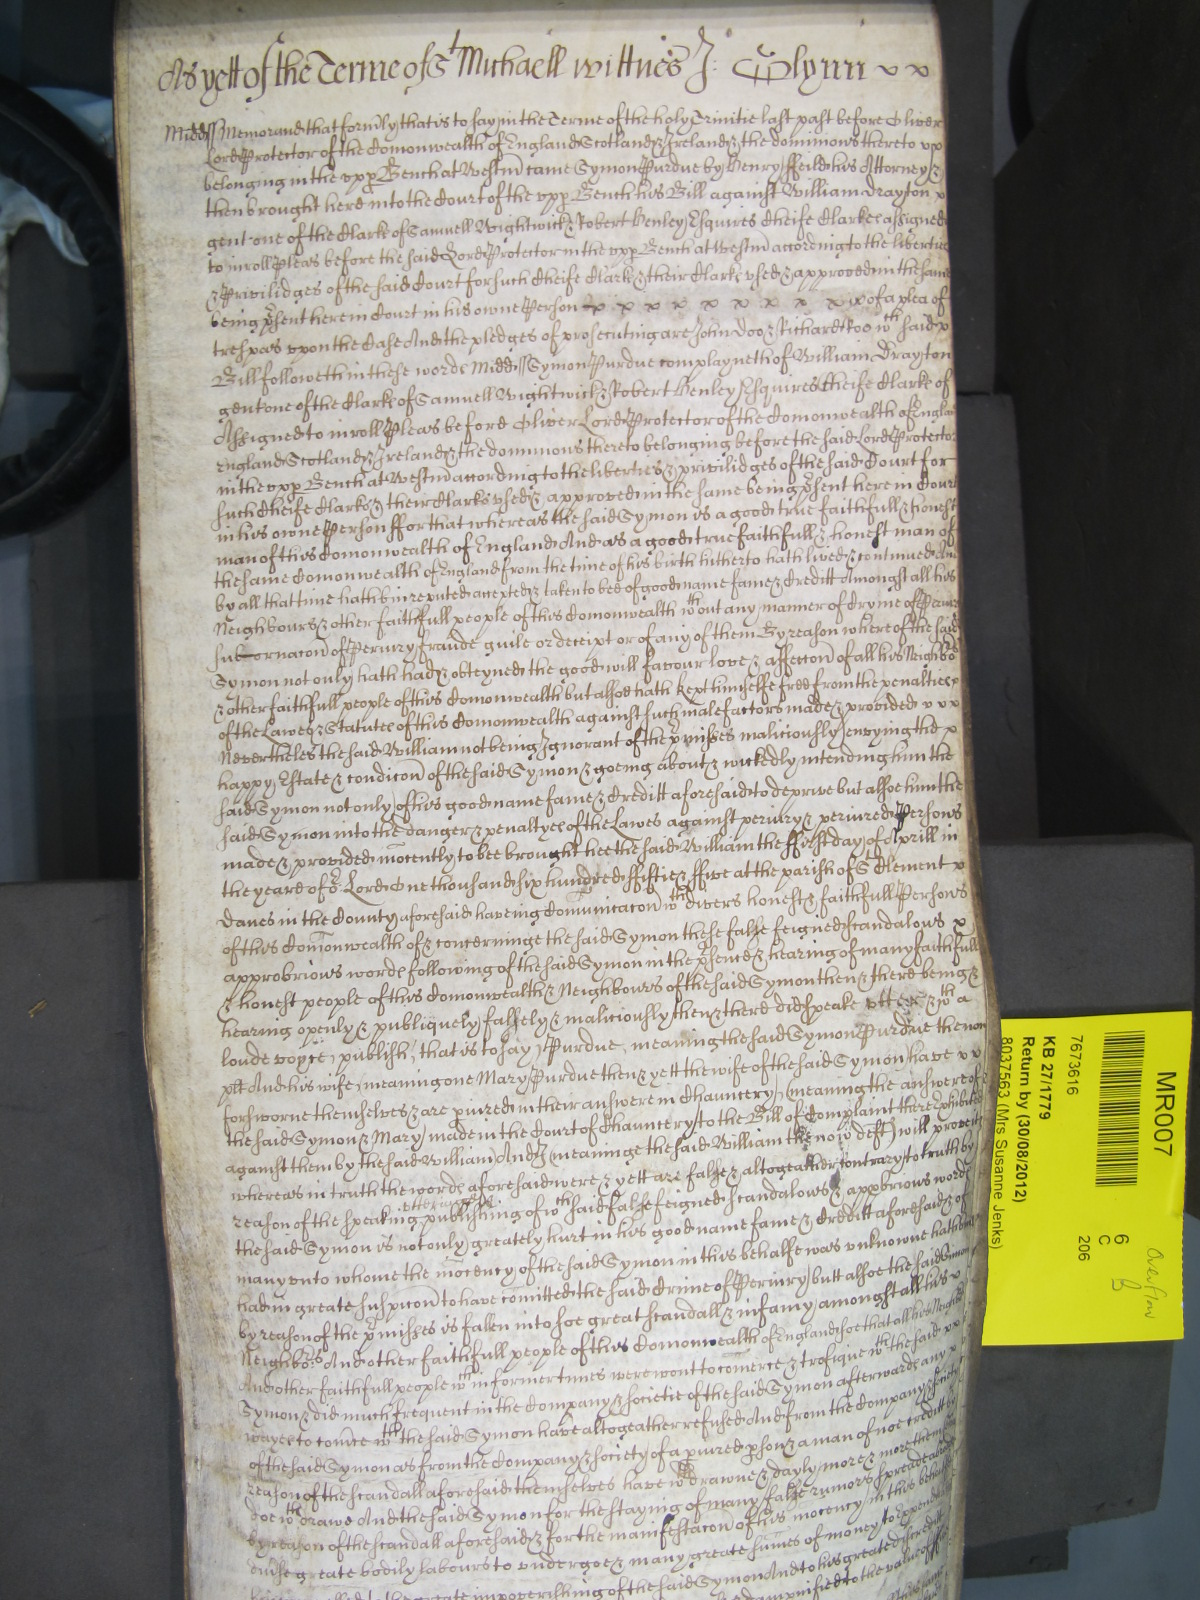 As yett of the Terme of St Michaell wittnes J: Glynn x x
Midds Memorand that formly that is to say in the Terme of the holy Trinitie last past before Oliver
Lord Protector of the Comonwealth of England Scotland & Ireland & the dominions thereto
belonging in the upp Bench at Westm came Symon Purdue by Henry ffeild his Attorney &
then brought here into the Court of the upp Bench his Bill against William Drayton
gent one of the Clarke of Samuell Wightwick & Robert Henley Esquires Cheife Clarkes assigned
to inroll Pleas before the said Lord Protector in the upp Bench at Westm according to the liberties
& Privilidges of the said Court for such Cheife Clark & their Clarks used & approved in the same
being psent here in Court in his owne Person x x x x x x x x x x of a plea of
trespas upon the Case And the pledges of prosecuting are John Doo & Richard Roo wch said
Bill followeth in these words Midds Symon Purdue complayneth of William Drayton
gent one of the Clarke of Samuell Wightwick & Robert Henley Esquires Cheife Clarke of
Assigned to inroll Pleas before Oliver Lord Protector of the Comonwealth of
England Scotland & Ireland & the dominions thereto belonging before the said Lord Protector
in the upp Bench at Westm according to the liberties & privilidges of the said Court for
such Cheife Clarks & their Clarks used & approved in the same being psent here in Court
in his owne Person ffor that whereas the said Symon is a good true faithfull & honest
man of this Comonwealth of England And as a good true faithfull & honest man of
the same Comonwealth of England from the time of his birth hitherto hath lived & continued And
by all that time hath bin reputed accepted & taken to bee of good name fame & creditt Amongst all his
Neighbours & other faithfull people of this Comonwealth wthout any manner of cryme of Periury
subornacon of Periury fraude guile or deceipt or of any of them By reason whereof the said
Symon not only hath had & obteyned the good will favour love & affeccon of all his Neighbo
& other faithfull people of this Comonwealth but alsoe hath kept himselfe free from the penalties
of the Lawes & Statutes of this Comonwealth against such malefactors made & provided x x x
Neverthelesse the said William not being Ignorant of the pmisses maliciously envying the
happy Estate & condicon of the said Symon & goeing about & wickedly intending him the
said Symon not only of his good name fame & creditt aforesaid to deprive but alsoe him the
said Symon into the danger & penaltyes of the Lawes against periury & periured Persons
made & provided inocently to bee brought hee the said William the ffirst day of Aprill in
the yeare of or Lord One thousand six hundred ffiftie & ffive at the parish of St Clement
Danes in the County aforesaid haveing comunicacon wth divers honest & faithfull Persons
of this Comonwealth of & concerninge the said Symon these false feigned scandalows
approbriows words following of the said Symon in the psence & hearing of many faithfull
& honest people of this Comonwealth & Neighbours of the said Symon then & there being &
hearing openly & publiquely falsely & maliciously then & there did speake utter & wth a
loude voyce publish that is to say Purdue meaning the said Symon Purdue the now
plt And his wife meaning one Mary Purdue then & yett the wife of the said Symon have
forsworne themselves & are piured in their answere in Chauncery (meaning the answere of
the said Symon & Mary made in the Court of Chauncery to the Bill of Complaint there exhibited
against them by the said William And I (meaninge the said William the now deft) will prove it
whereas in truth the words aforesaid were & yett are false & altogeather contrary to truth by
reason of the speaking uttering & publishing of wch said false feigned scandalows & appbriows words
the said Symon is not only greately hurt in his good name fame & creditt aforesaid & of
many unto whome the inocency of the said Symon in this behalfe was unknowne hath
had in great suspicon to have comitted the said crime of Periury butt alsoe the said Simon
by reason of the pmisses is fallen into soe great scandall & infamy amongst all his
Neighbors And other faithfull people of this Comonwealth of England soe that all his Neighb
And other faithfull people wch in former times were wont to comerce & trafique wth the said
Symon & did much frequent in the Company & societie of the said Symon afterwards any
wayes to comerce wth the said Symon have altogeather refused And from the Company & society
of the said Symon as from the Company & society of a piured pson & a man of noe creditt by
reason of the scandall aforesaid themselves have wthdrawne & dayly more & more them
doe wthdrawe And the said Symon for the staying of many false rumors spread abroad
by reason of the scandall aforesaid & for the manifestacon of his inocency in this behalfe
divse great bodily labours to undergoe & many great sumes of money to expend
the great impoverishing of the said Symon And to his great discreditt
MR007
7673616
KB 27/1779
Return by (30/08/2012)
8037563 (Mrs Susanne Jenks)
6
C
206
Overflow
B